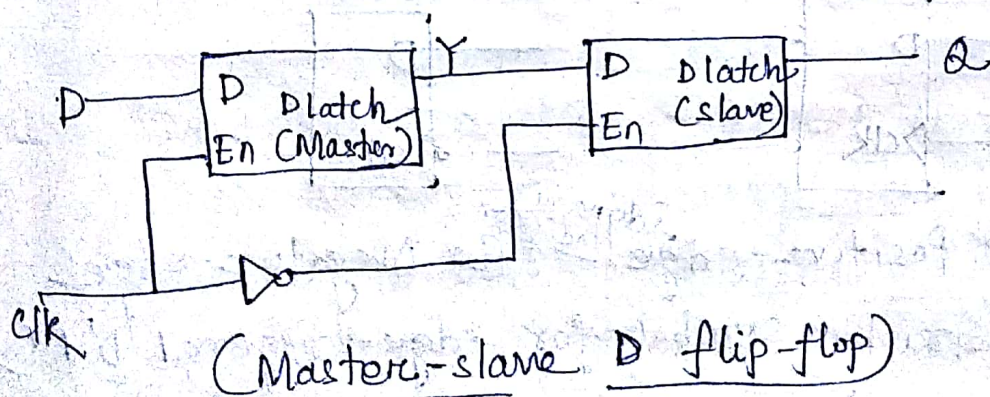 Y
D
D
Dlatch
En (Master)
D
Dlatch
(slave)
En
Q
Clk
(Master-slave D flip-flop)